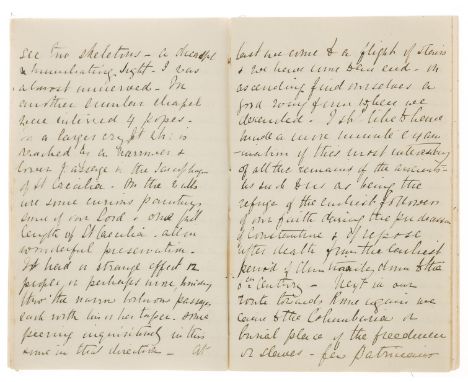 see two skeletons - a dreadful
& humiliating sight. I was
almost unnerved. In
another similar chapel
were interred 4 popes.
In a larger crypt this is
reached by a narrower &
lower passage is the Sarcophagus
of St Cecilia. On the walls
are some curious paintings
some of our Lord & one full
length of St Cecilia - all in
wonderful preservation -
It had a strange effect
people, or perhaps more, winding
thro' the narrow tortuous passages
each with his or her taper. Some
peering inquisitively in this
some in that direction - At
last we come to a flight of stairs
& we have come to an end - on
ascending find ourselves a
good way from where we
descended. I sh'd like to have
made a more minute exam-
-ination of this most interesting
of all the remains of the ancients -
as such & as being the
refuge of the earliest followers
of our faith during the
of Constantine & of repose
after death from the earliest
period of Christianity down to the
5th Century - Next in our
route towards Rome again we
came to the Columbaria or
burial place of the freedmen
or slaves -